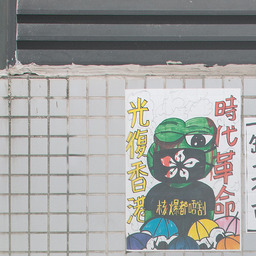 光復香港
時代革命
核爆都唔割